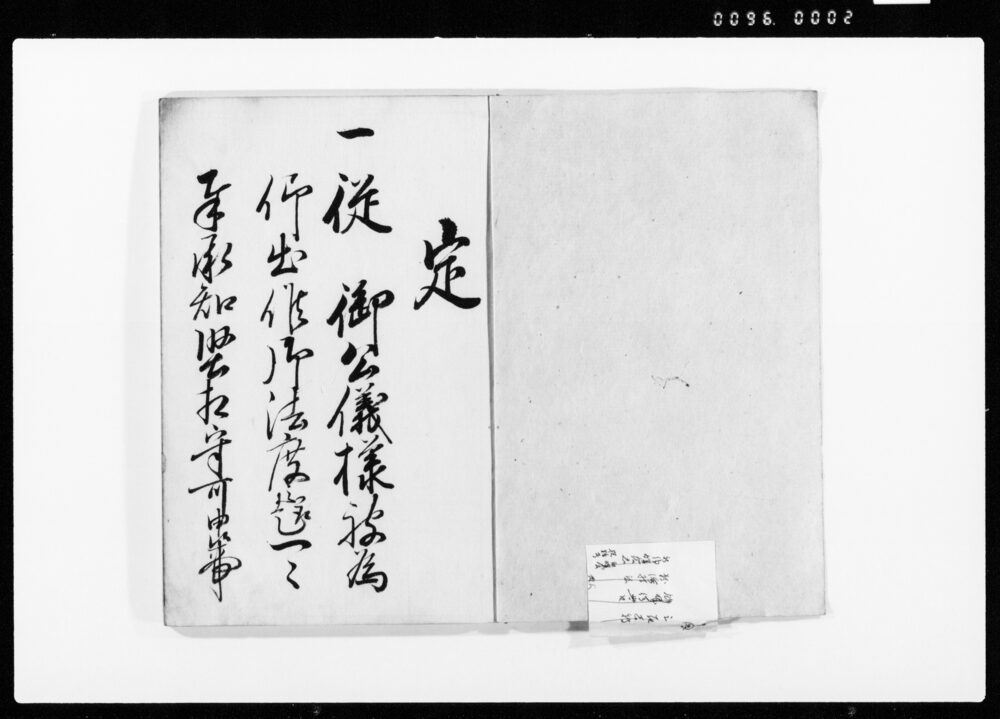 0096. 0002
定
一従 御公儀様被為
仰出候御法度趣一々
奉承知堅相守可申事